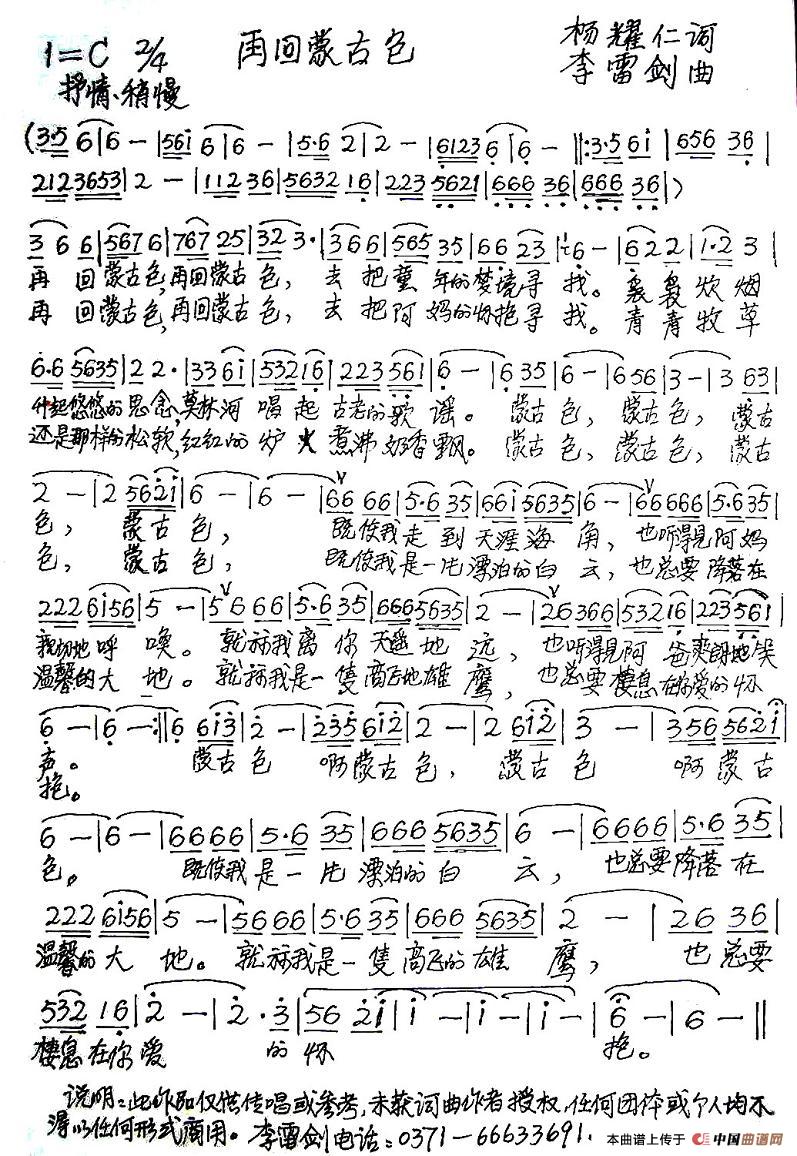 1=C 2/4 再回蒙古包 杨耀仁词
抒情、稍慢 李雷剑曲
(3·5 6|6 — |561 6|6 — |5·6 2|2 — |6123 6|6 — ‖:3·5 61|656 36|
2123653|2 — |112 36|5632 16|223 5621|666 36|666 36|)
3 6 6|567 6|767 25|32 3·|366|565 35|66 23|1 6 —|622|1·2 3|
再回蒙古包,再回蒙古包,去把童年的梦境寻找。袅袅炊烟
再回蒙古包,再回蒙古包,去把阿妈的怀抱寻找。青青牧草
6·6 5635|2 2·|33 61|532 16|223 561|6 —|6 35|6 —|6 56|3 —|3 63|
升起悠悠的思念,莫林河唱起古老的歌谣。蒙古包,蒙古包,蒙古
还是那样的松软,红红的炉火煮沸奶香飘。蒙古包,蒙古包,蒙古
2 —|2 5621|6 —|6 —|66 66|5·6 35|661 5635|6 —|66666|5·6 35|
包,蒙古包,既使我走到天涯海角,也听得见阿妈
包,蒙古包,既使我是一片漂泊的白云,也总要降落在
222 6156|5 —|5 6 66|5·6 35|666 5635|2 —|26 366|532 16|223 561|
亲切地呼唤。就祘我离你天遥地远,也听得见阿爸爽朗地笑
温馨的大地。就祘我是一隻高飞地雄鹰,也总要棲息在你爱的怀
6 —|6 —:‖6 613|2 —|235 612|2 —|2 612|3 —|356 5621|
声。蒙古包啊蒙古包,蒙古包啊蒙古
抱。
6 —|6 —|6666|5·6 35|666 5635|6 —|6666|5·6 35|
包。既使我是一片漂泊的白云,也总要降落在
222 6156|5 —|5666|5·6 35|666 5635|2 —|26 36|
温馨的大地。就祘我是一隻高飞的雄鹰,也总要
532 16|2 —|2·3|56 21|1 —|1 —|1 —|6 —|6 —‖
棲息在你爱的怀抱。
说明:此作品仅供传唱或参考,未获词曲作者授权,任何团体或个人均不
得以任何形式商用。李雷剑电话:0371-66633691. 本曲谱上传于 中国曲谱网